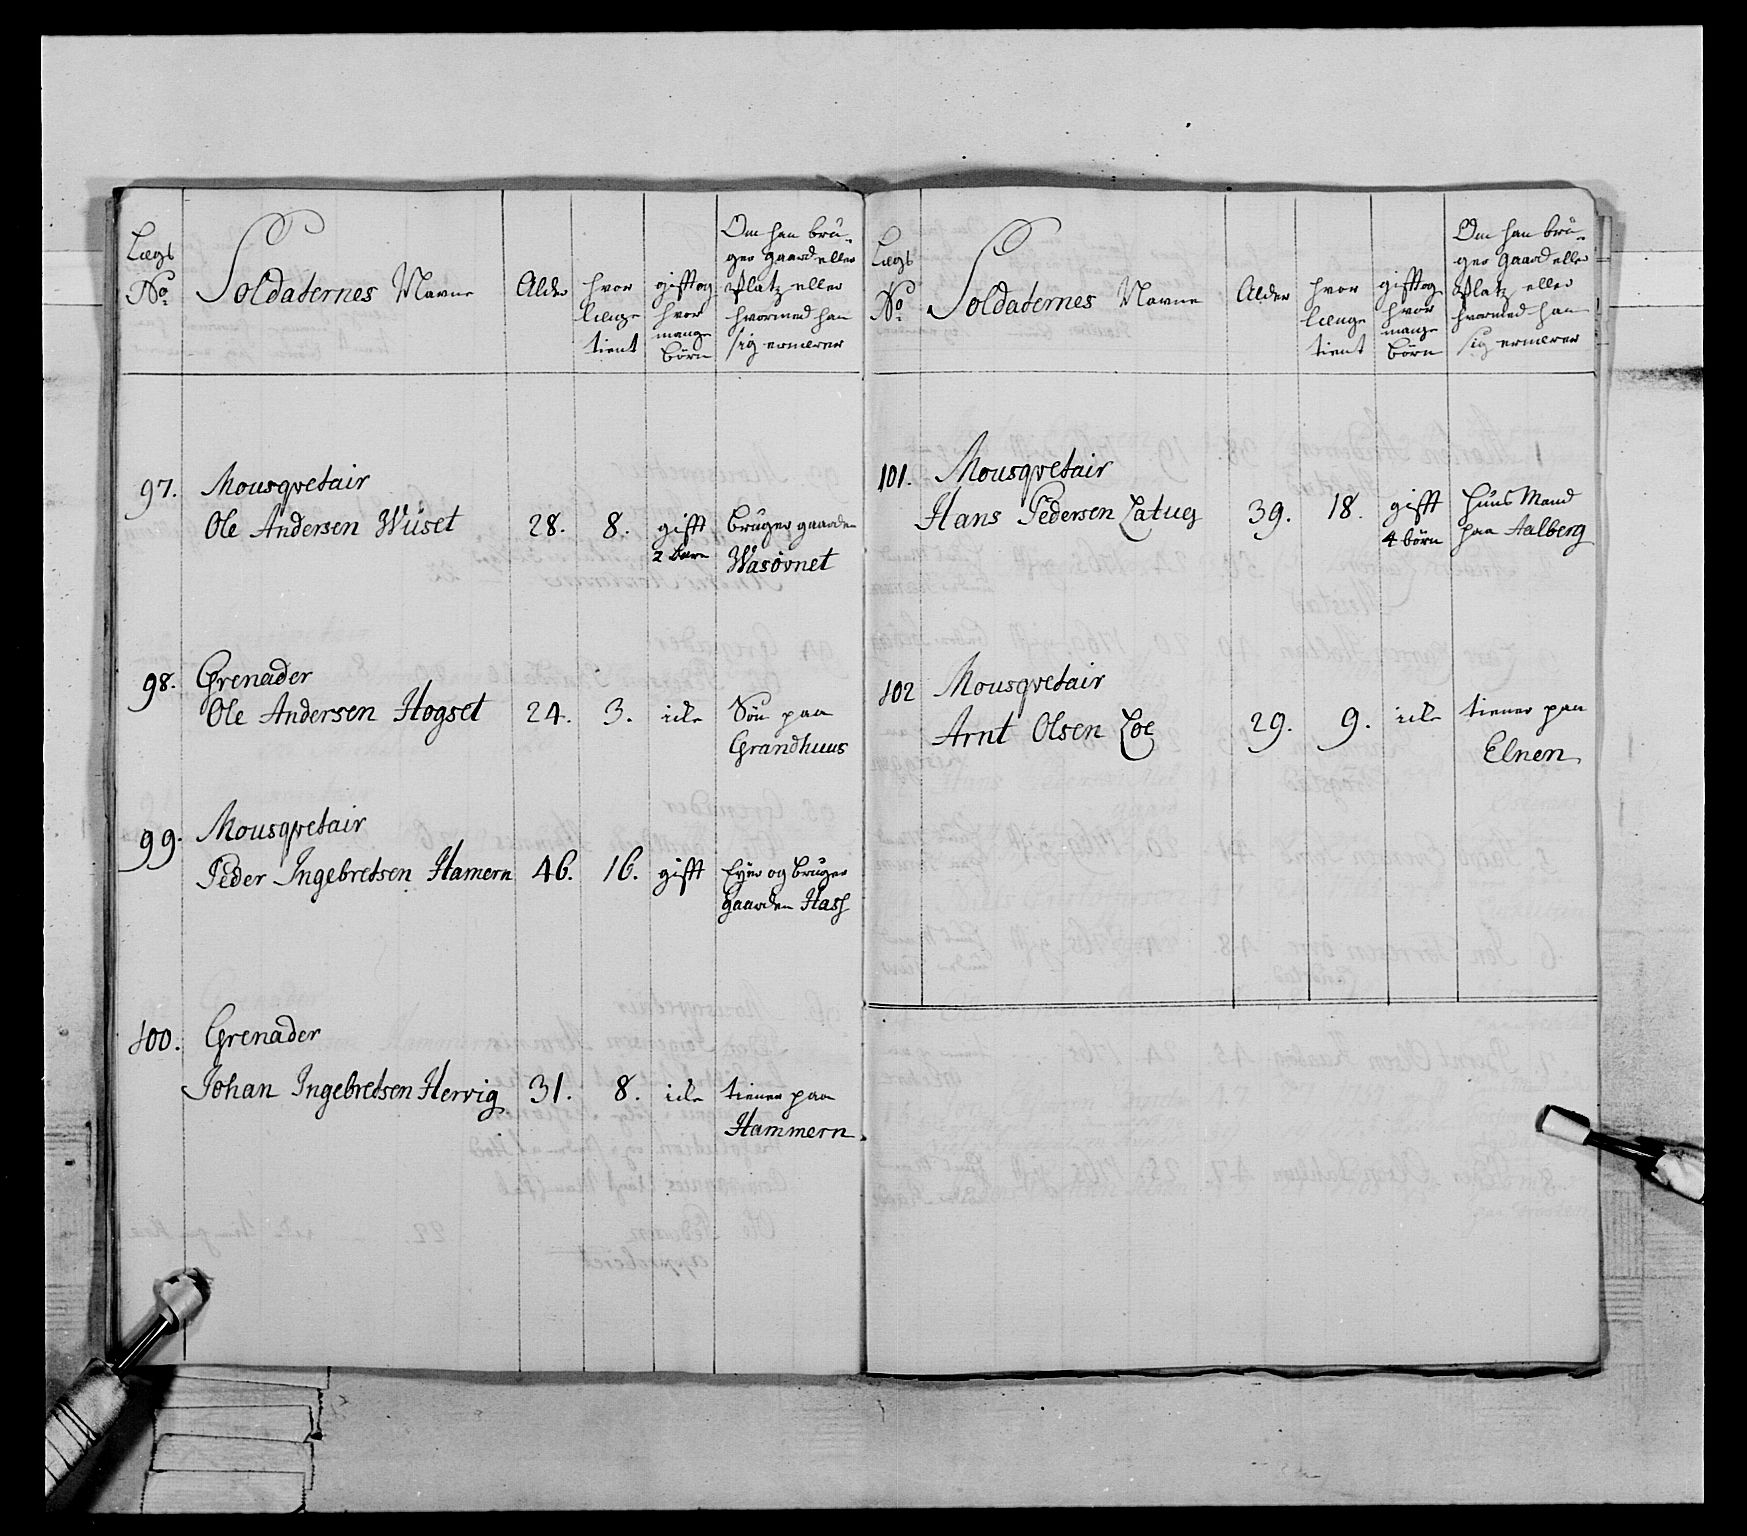 Lægs
No
Soldaternes Navne
Alder
hvor
længe
tient
gifft og
hvor
mange
børn
Om han bru-
ger gaard eller
Platz eller
hvormed han
sig ernærer
97.
Mousqvetair
Ole Andersen Wüset 28. 8. gifft bruger gaarden
2 barn Wasövnet
98. Grenader
Ole Andersen Hogset 24. 3. icke Søn paa
Grandhuus
99. Mousqvetair
Peder Ingebretsen Hamern 46. 16. gifft Eyer og bruger
gaarden Hass
100. Grenader
Johan Ingebretsen Hervig 31. 8. icke tiener paa
Hammern.
Lægs
No
Soldaternes Navne
Alder
hvor
længe
tient
gifft og
hvor
mange
børn
Om han bru-
ger gaard eller
Platz eller
hvormed han
sig ernærer
101. Mousqvetair
Hans Pedersen 39. 18. gifft Huus Mand
4 børn paa Aalberg
102 Mousqvetair
Arnt Olsen Loe 29. 9. icke tiener paa
Elnen